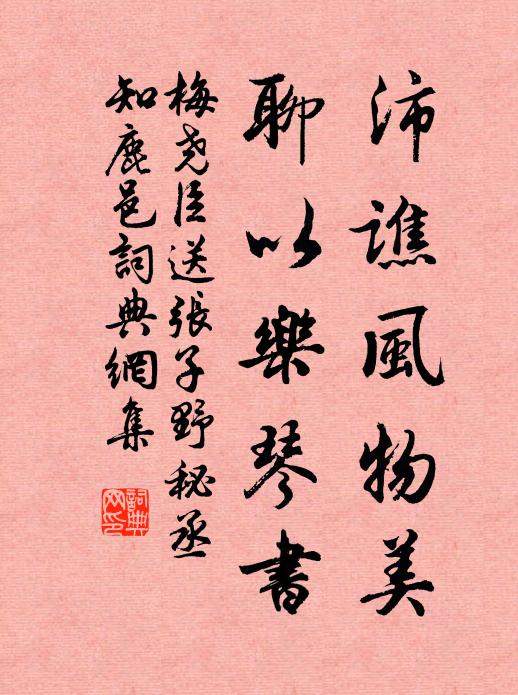 沛譙風物美
聊以樂琴書
梅堯臣送張子野秘丞
知鹿邑詞典網集
詞典網印